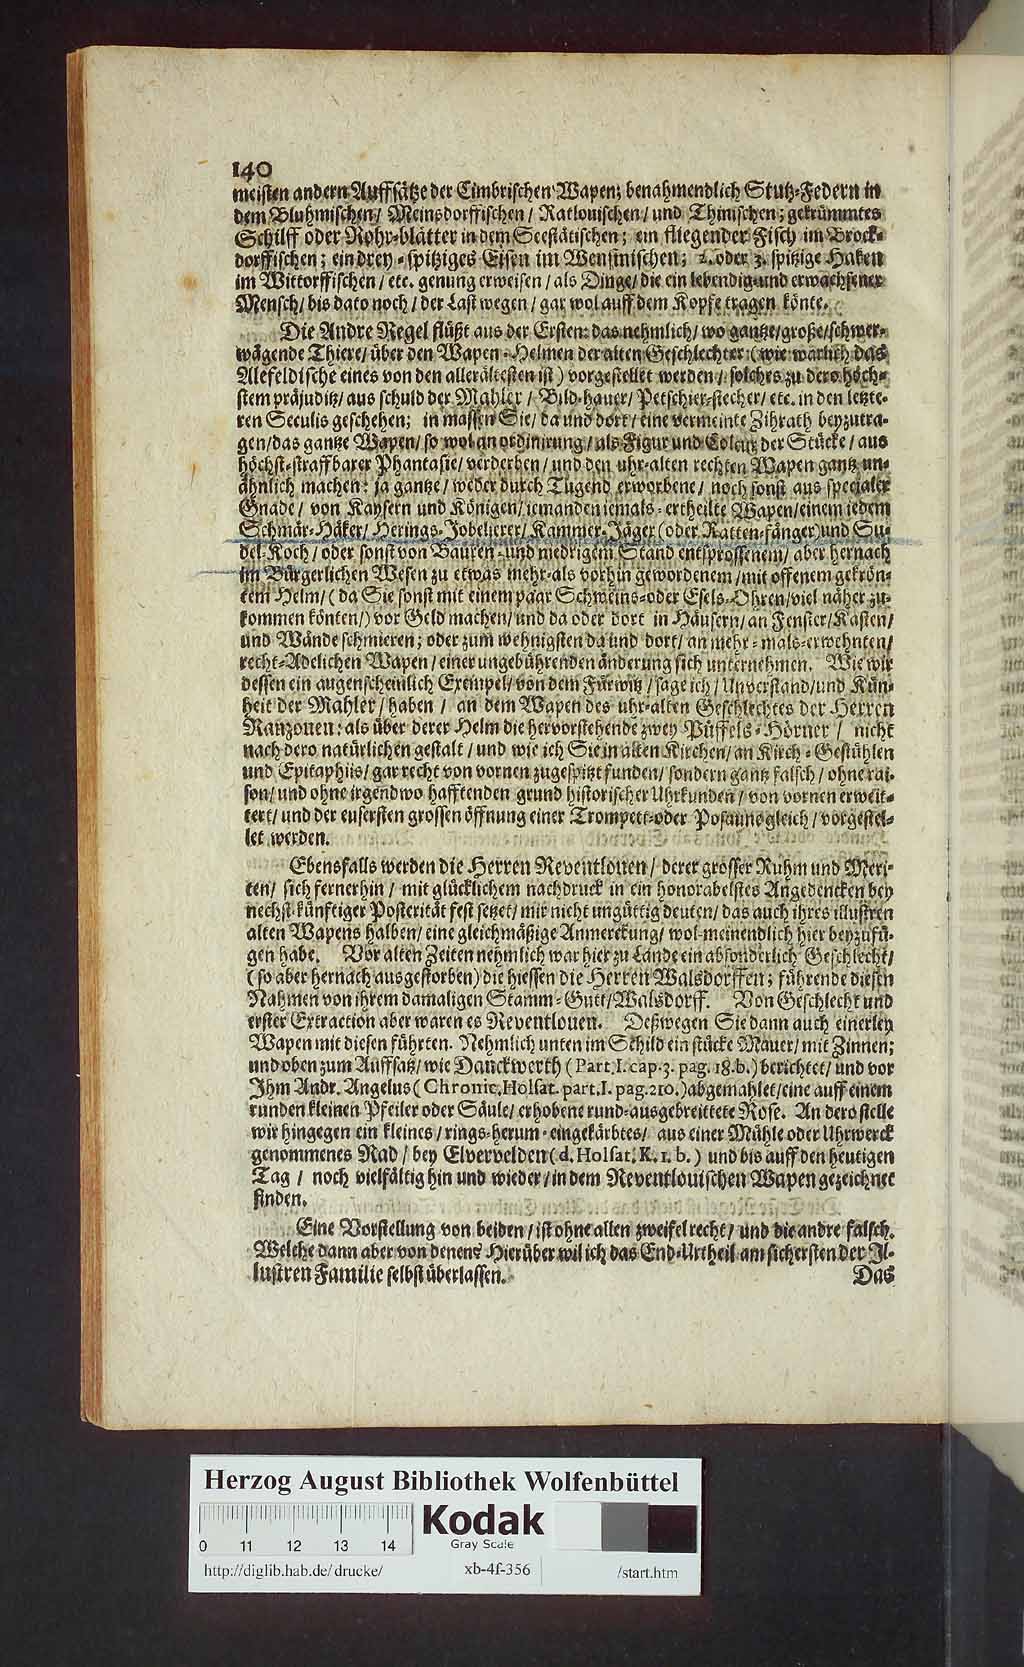 140
meisten andern Auffsätze der Cimbrischen Wapen; benahmendlich Stutz-Federn in
dem Bluhmischen/ Meinsdorffischen/ Ratlouischen/ und Thinischen; gekrümmtes
Schilff oder Rohr-blätter in dem Seestätischen; ein fliegender Fisch im Brock-
dorffischen; ein drey-spitziges Eisen im Wensinischen; 2. oder 3. spitzige Haken
im Wittorffischen/ etc. genung erweisen/ als Dinge/ die ein lebendig-und erwachsener
Mensch/ bis dato noch/ der Last wegen/ gar wol auff dem Kopfe tragen könte.
Die Andre Regel flüßt aus der Ersten: das nehmlich/ wo gantze/große/schwer-
wägende Thiere/ über den Wapen-Helmen der alten Geschlechter (wie warlich das
Alefeldische eines von den allerältesten ist) vorgestellet werden/ solches zu dero höch-
stem präjuditz/ aus schuld der Mahler/ Bild-hauer/ Petschier-stecher/ etc. in den letzte-
ren Seculis geschehen; in massen Sie/ da und dort/ eine vermeinte Zihrath beyzutra-
gen/das gantze Wapen/ so wol an ordinirung/ als Figur und Coleur der Stücke/ aus
höchst-straffbarer Phantasie/ verderben/ und den uhr-alten rechten Wapen gantz un-
ähnlich machen: ja gantze/ weder durch Tugend erworbene/ noch sonst aus specialer
Gnade/ von Kaysern und Königen/ iemanden iemals-ertheilte Wapen/einem iedem
Schmär-Häker/ Herings-Jobelierer/ Kammer-Jäger (oder Ratten-fänger) und Su-
del-Koch/ oder sonst von Bauren-und niedrigem Stand entsprossenem/ aber hernach
im Bürgerlichen Wesen zu etwas mehr-als vorhin gewordenem/mit offenem gekrön-
tem Helm/ (da Sie sonst mit einem paar Schweins-oder Esels-Ohren/viel näher zu-
kommen könten/) vor Geld machen/ und da oder dort in Häusern/ an Fenster/Kasten/
und Wände schmieren; oder zum wehnigsten da und dort/ an mehr-mals-erwehnten/
recht-Adelichen Wapen/ einer ungebührenden änderung sich unternehmen. Wie wir
dessen ein augenscheinlich Exempel/ von dem Fürwitz/ sage ich/ Unverstand/und Kün-
heit der Mahler/ haben/ an dem Wapen des uhr-alten Geschlechtes der Herren
Ranzonen: als über derer Helm die hervorstehende zwey Püffels-Hörner/ nicht
nach dero natürlichen gestalt/ und wie ich Sie in alten Kirchen/ an Kirch-Gestühlen
und Epitaphiis/ gar recht von vornen zugespitzt funden/ sondern gantz falsch/ ohne rai-
son/ und ohne irgendwo hafftenden grund historischer Uhrkunden/ von vornen erweit-
tert/ und der eusersten grossen öffnung einer Trompett-oder Posaune gleich/ vorgestel-
let werden.
Ebensfalls werden die Herren Reventlouen/ derer grosser Ruhm und Meri-
ten/ sich fernerhin/ mit glücklichem nachdruck in ein honorabelstes Angedencken bey
nechst-künftiger Posterität fest setzet/ mir nicht ungüttig deuten/ das auch ihres illustren
alten Wapens halben/ eine gleichmäßige Anmerckung/ wol-meinendlich hier beyzufü-
gen habe. Vor alten Zeiten nehmlich war hier zu Lande ein absonderlich Geschlecht/
(so aber hernach ausgestorben) die hiessen die Herren Walsdorffen; führende diesen
Nahmen von ihrem damaligen Stamm-Gutt/Walsdorff. Von Geschlecht und
erster Extraction aber waren es Reventlouen. Deßwegen Sie dann auch einerley
Wapen mit diesen führten. Nehmlich unten im Schild ein stücke Mauer/ mit Zinnen;
und oben zum Auffsatz/ wie Danckwerth (Part. I. cap. 3. pag. 18. b.) berichtet/ und vor
Ihm Andr. Angelus (Chronic. Holsat. part. I. pag. 210.) abgemahlet/eine auff einem
runden kleinen Pfeiler oder Säule/ erhobene rund-ausgebreittete Rose. An dero stelle
wir hingegen ein kleines/ rings-herum-eingekärbtes/ aus einer Mühle oder Uhrwerck
genommenes Rad/ bey Elvervelden (d. Holsat. K. 1. b.) und bis auff den heutigen
Tag/ noch vielfältig hin und wieder/ in dem Reventlouischen Wapen gezeichnet
finden.
Eine Vorstellung von beiden/ ist ohne allen zweifel recht/ und die andre falsch.
Welche dann aber von denen? Hierüber wil ich das End-Urtheil am sichersten der Il-
lustren Familie selbst überlassen.
Das
Herzog August Bibliothek Wolfenbüttel
Kodak
Gray Scale
0 11 12 13 14
http://diglib.hab.de/drucke/ xb-4f-356 /start.htm